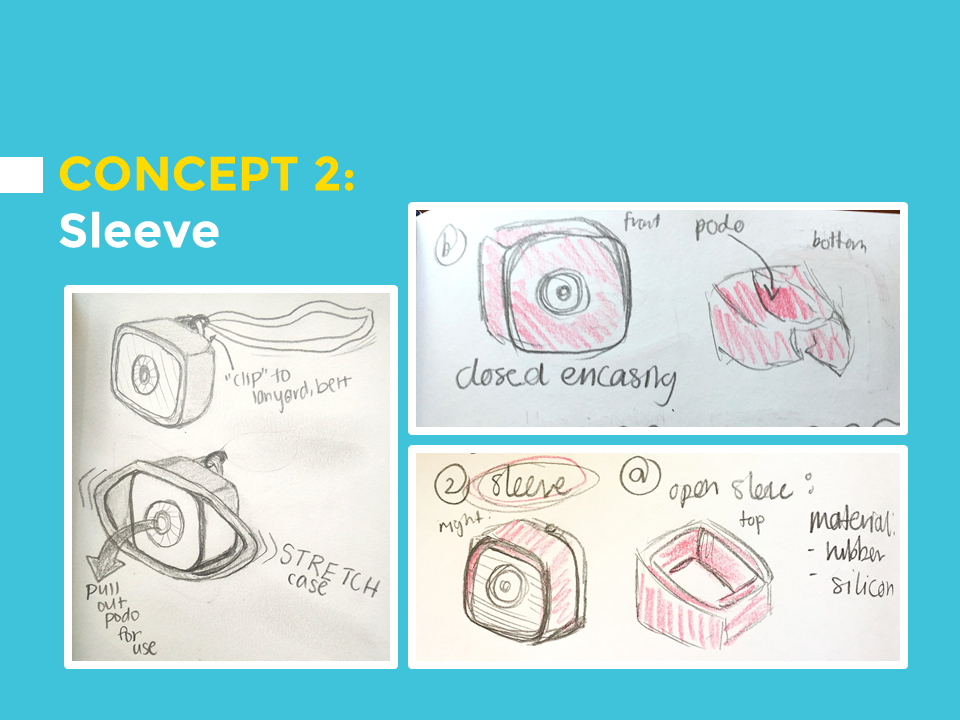 CONCEPT 2:
Sleeve
"clip" to
lanyard, belt
STRETCH
case
pull
out
podo
for
use
b
front
podo
bottom
closed encasing
2
sleeve
a
open sleve :
top
material:
- rubber
- silicon